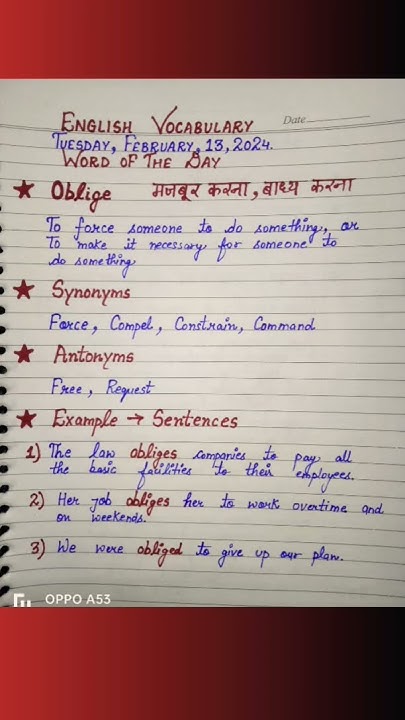 Date
ENGLISH VOCABULARY
TUESDAY, FEBRUARY, 13, 2024.
WORD OF THE DAY
★ Oblige मजबूर करना, बाध्य करना
To force someone to do something, or
To make it necessary for someone to
do something
★ Synonyms
Force, Compel, Constrain, Command
★ Antonyms
Free, Request
★ Example → Sentences
1) The law obliges companies to pay all
the basic facilities to their employees.
2) Her job obliges her to work overtime and
on weekends.
3) We were obliged to give up our plan.
OPPO A53